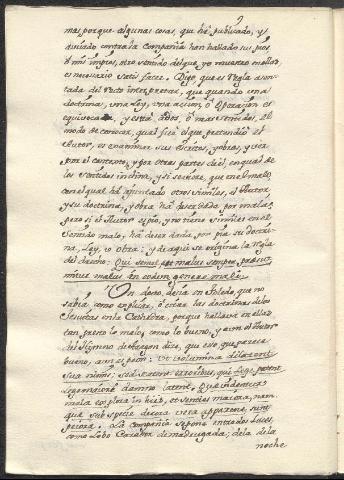 mas, porque algunas cosas, que há publicado, y
divulgado contra la Compañia han hallado sus pios,
ó mis impios, otro sentido del que yo muestro en ellos,
es necesario satisfacer. Digo, que es regla asen-
tada del recto interpretar, que quando una
doctrina, una Ley, una accion, ó operacion es
equivoca, y está á dos, ó mas sentidos, el
modo de conocer, qual sea el que pretendió el
Autor, es examinar sus escritos, y obras, y ver
por el contexto, y por otras partes de él, en qual de
los sentidos inclina, y si se viere, que en el malo,
con el qual há apuntado otros similes, el Autor
y su doctrina, y obra há de ser dada por mala;
pero si el Autor es pio, y no tiene similes en el
sentido malo, há de ser dada por pia su doctri-
na, Ley, ó obra; y de aqui se origina la regla
del derecho: Qui semel est malus semper præsu-
mitur malus in eodem genere mali.
Un docto, decia en Toledo, que no
sabia como explicar, ó citar las doctrinas de los
Jesuitas en la Cathedra, porque hallava en ellos
tan presto lo malo, como lo bueno, y aun el Autor
del Hymno de Aragon dice, que eso que parece
bueno, aun es peor: Ut volumina
sua nimis: sed scatent erroribus, qui
Lege maiore damno latent. Que
mala explota in hieb, et senties macera, nam
que sub specie decora vera apparent, sunt
peiora. La Compañia se pone entre dos luces,
como Lobo Cazador de madrugada; de la de la
noche